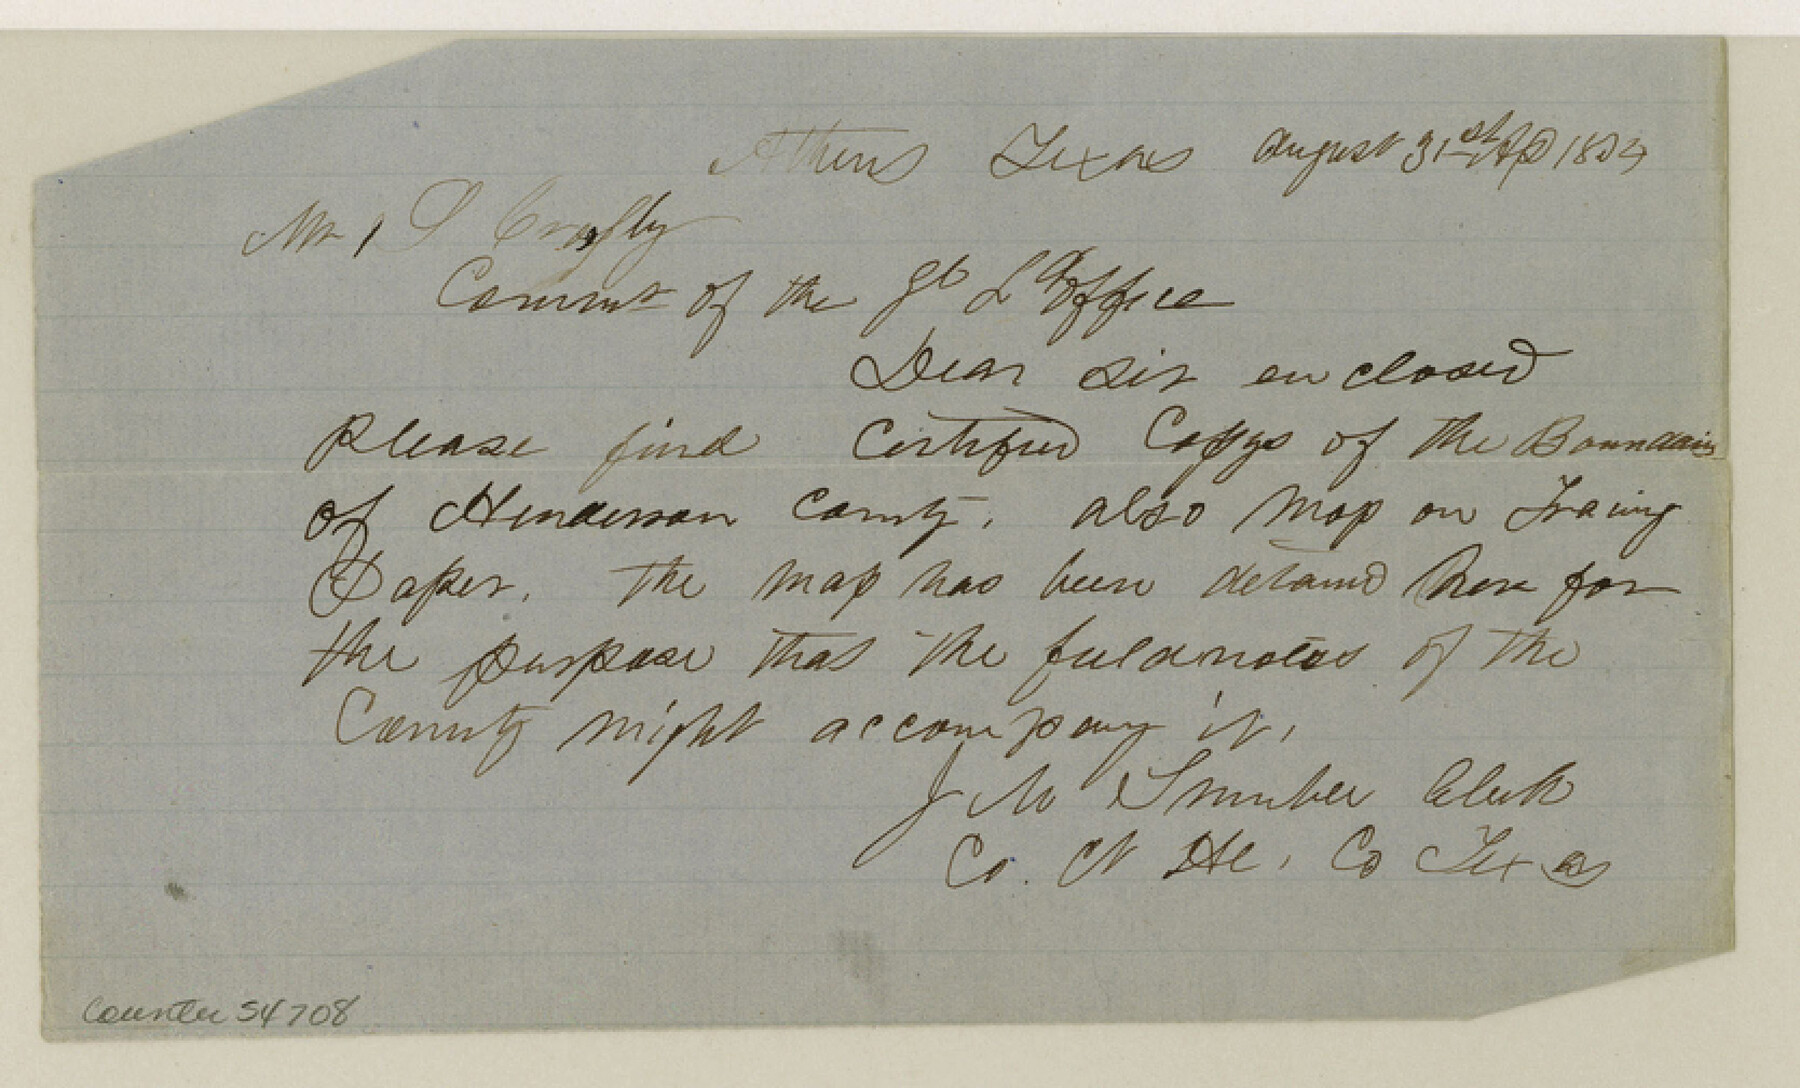 Athens Texas August 31st AD 1854
Mr S Crosby
Commr of the Gl Ld Office
Dear Sir enclosed
Please find Certified Copys of the Boundaries
of Henderson County. also Map on Tracing
Paper. The Map has been detaind here for
the purpose that the fieldnotes of the
County might accompany it.
J M Clerk
Co. Ct He. Co Texas
Counter 54708